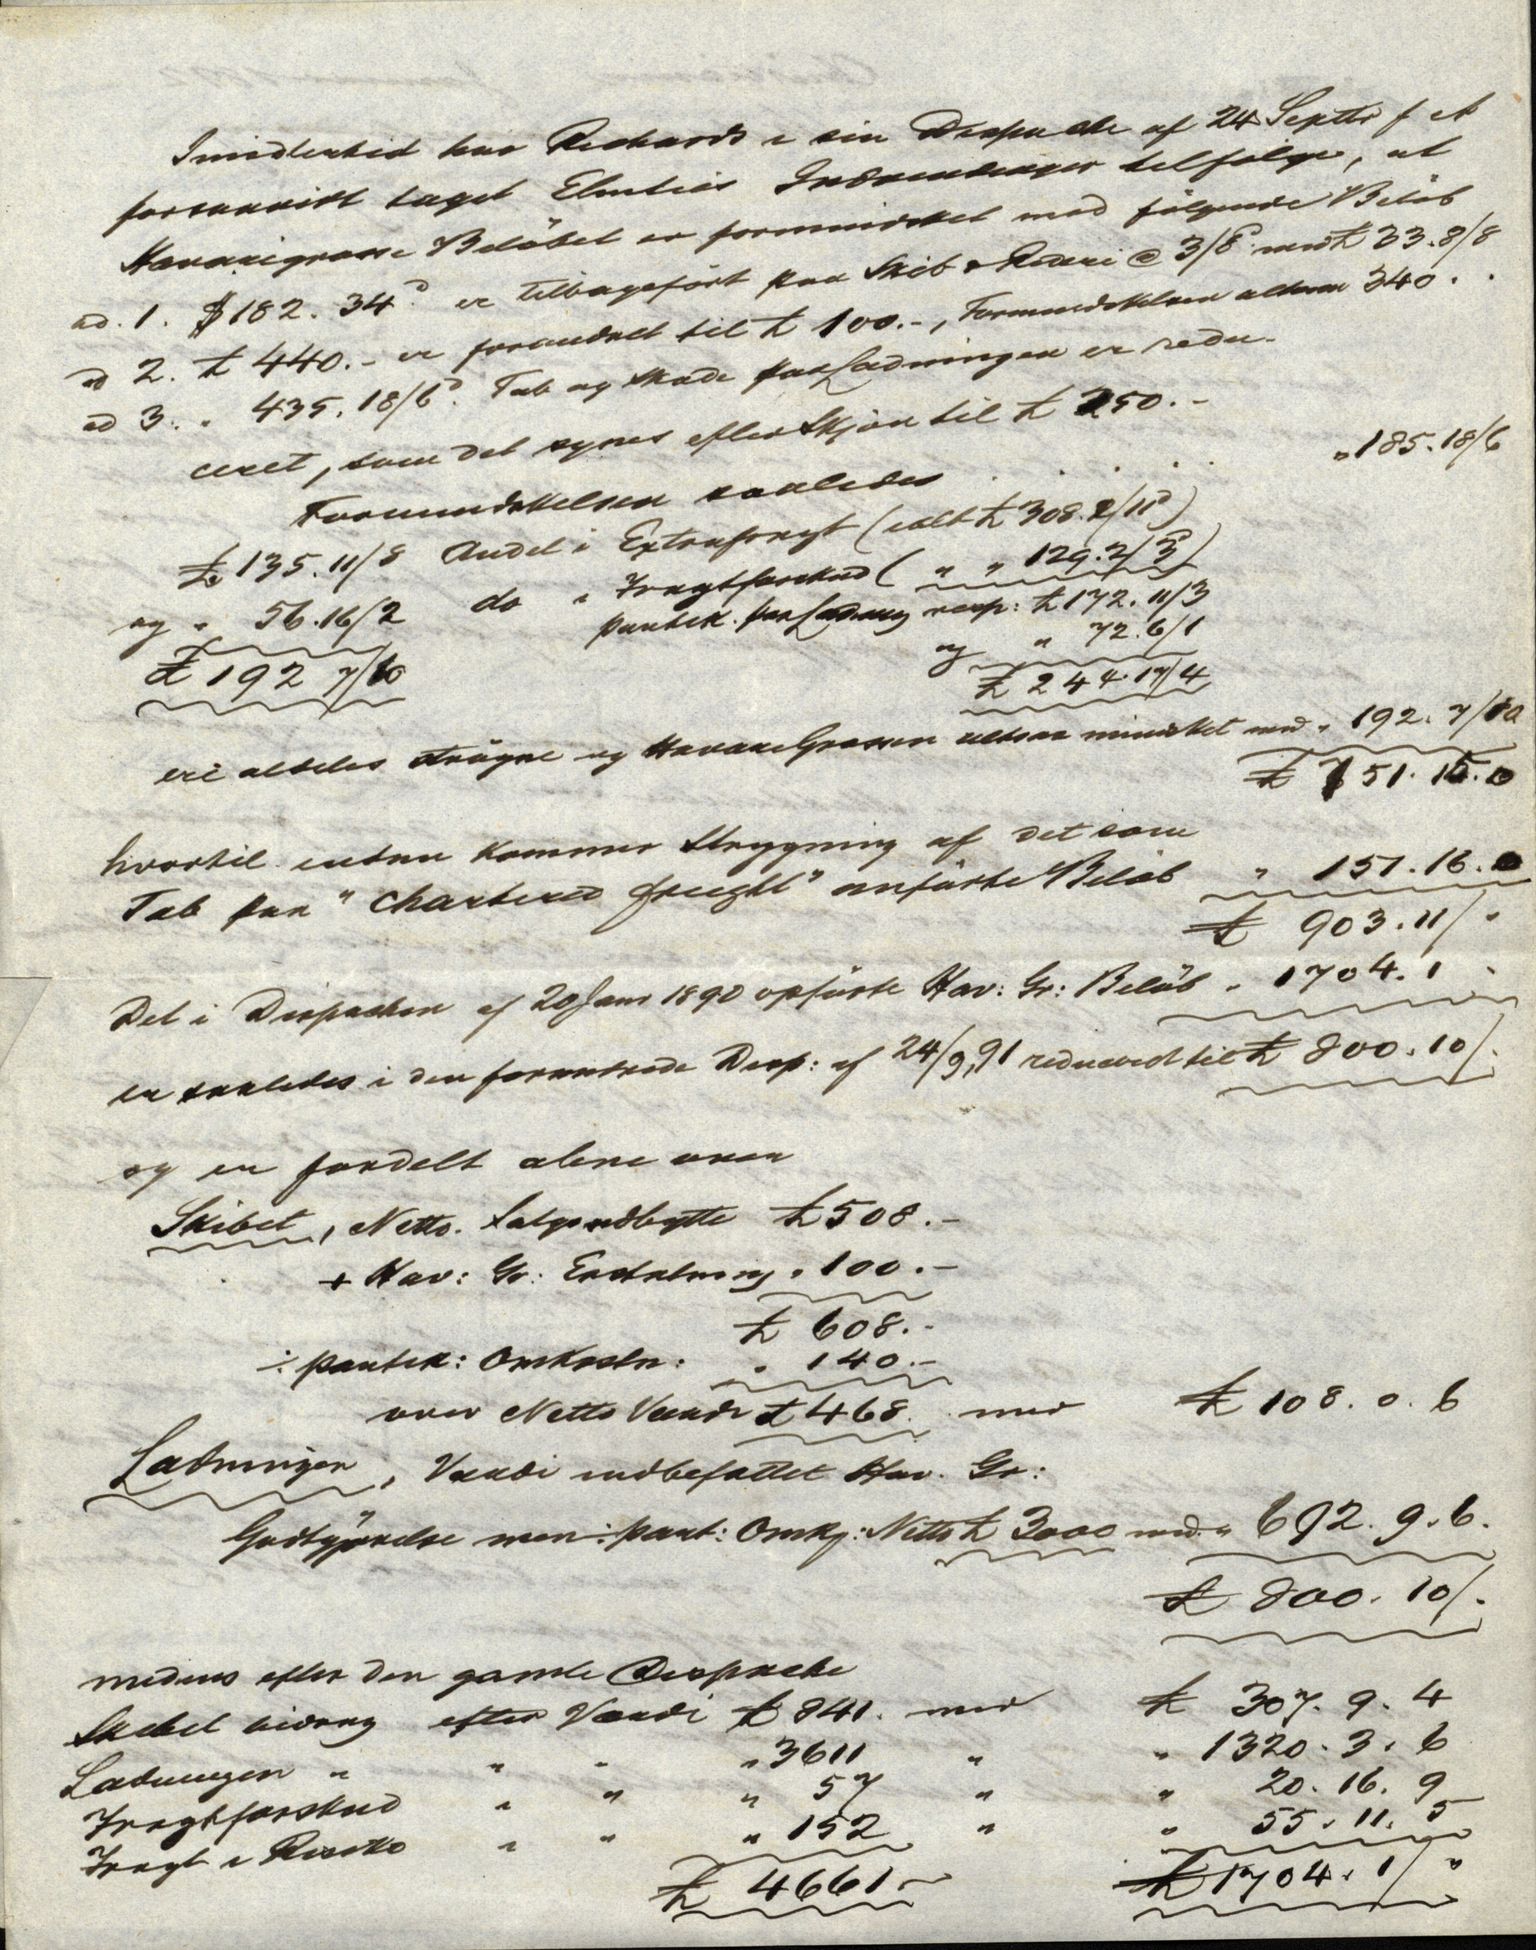 Imidlertid har Richards i sin Dispache af 24 Septbr f A
forsaavidt taget Elmties Indvendinger tilfølge, at
Havarigrosse Beløbet er formindsket med følgende Beløb
ad. 1. $182. 34 er tilbageført paa Skib & Rederi @ 3/8 med £ 33.8/8
ad 2. £ 440.- er forandret til £ 100.-, Formindskelsen altsaa 340. .
ad 3. " 435. 18/6. Tab og Skade paa Ladningen er redu-
ceret, som det synes efter Skjøn til £ 250.- " 185. 18/6
Formindskelsen saaledes
£ 135. 11/8 Andel i Extrafragt (ialt £ 308. 2/11)
og " 56.16/2 do " Fragtforskud ( " " 129. 2/3)
£ 192 7/10 partik. paa Ladning resp: £ 172. 11/3
og " 72. 6/1
£ 244. 17/4
ere aldeles strøgne og Havari Grossen altsaa mindsket med " 192. 7/10
£ 751. 15. 0
hvortil endnu kommer Strygning af det som
Tab paa "Chartered freight" anførte Beløb " 151. 16. 0
£ 903. 11/"
Det i Dispachen af 20 Janr 1890 opførte Hav: Gr: Beløb " 1704. 1 "
er saaledes i den forandrede Disp: af 24/9, 91 reduceret til £ 800. 10/.
og er fordelt alene over
Skibet, Netto. Salgsudbytte £ 508.-
+ Hav: Gr: Erstatning " 100.-
£ 608.-
÷ partik: Omkostn: " 140.-
over Netto Værdi £ 468. med £ 108. 0. 6
Ladningen, Værdi indbefattet Hav. Gr:
Godtgjørelse men ÷ part: Omkg: Netto £ 3000 med " 692. 9. 6.
£ 800. 10/.
medens efter den gamle Dispache
Skibet bidrog efter Værdi £ 841. med £ 307. 9. 4
Ladningen " " " " 3611 " " 1320. 3. 6
Fragtforskud " " " 57 " " 20. 16. 9
Fragt i Risiko " " " 152 " " 55. 11. 5
£ 4661 - £ 1704. 1/"